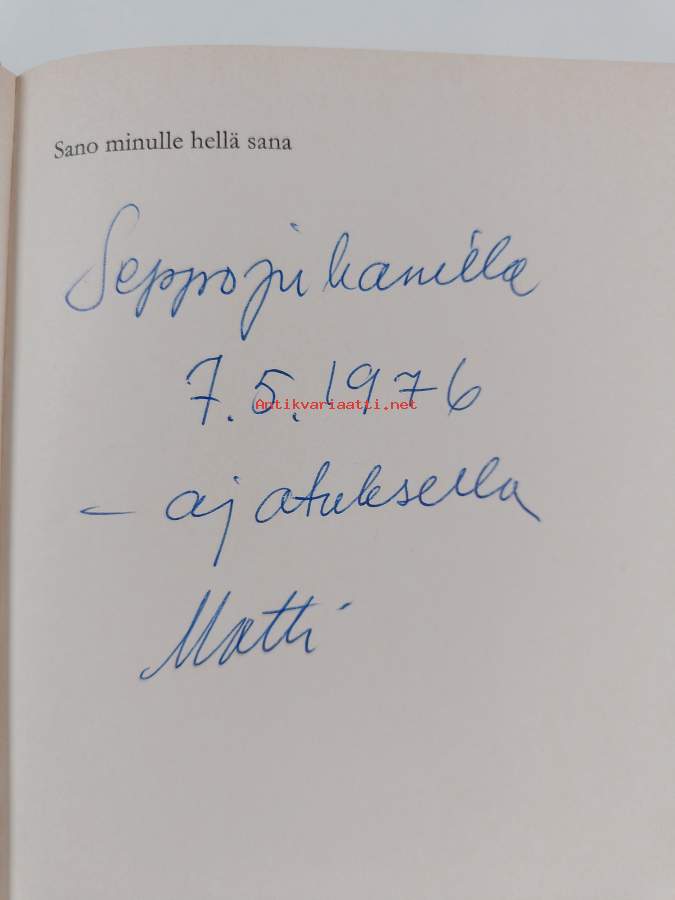 Sano minulle hellä sana
Seppojuhanilla
7.5.1976
Antikvariaatti.net
– ajatuksella
Matti